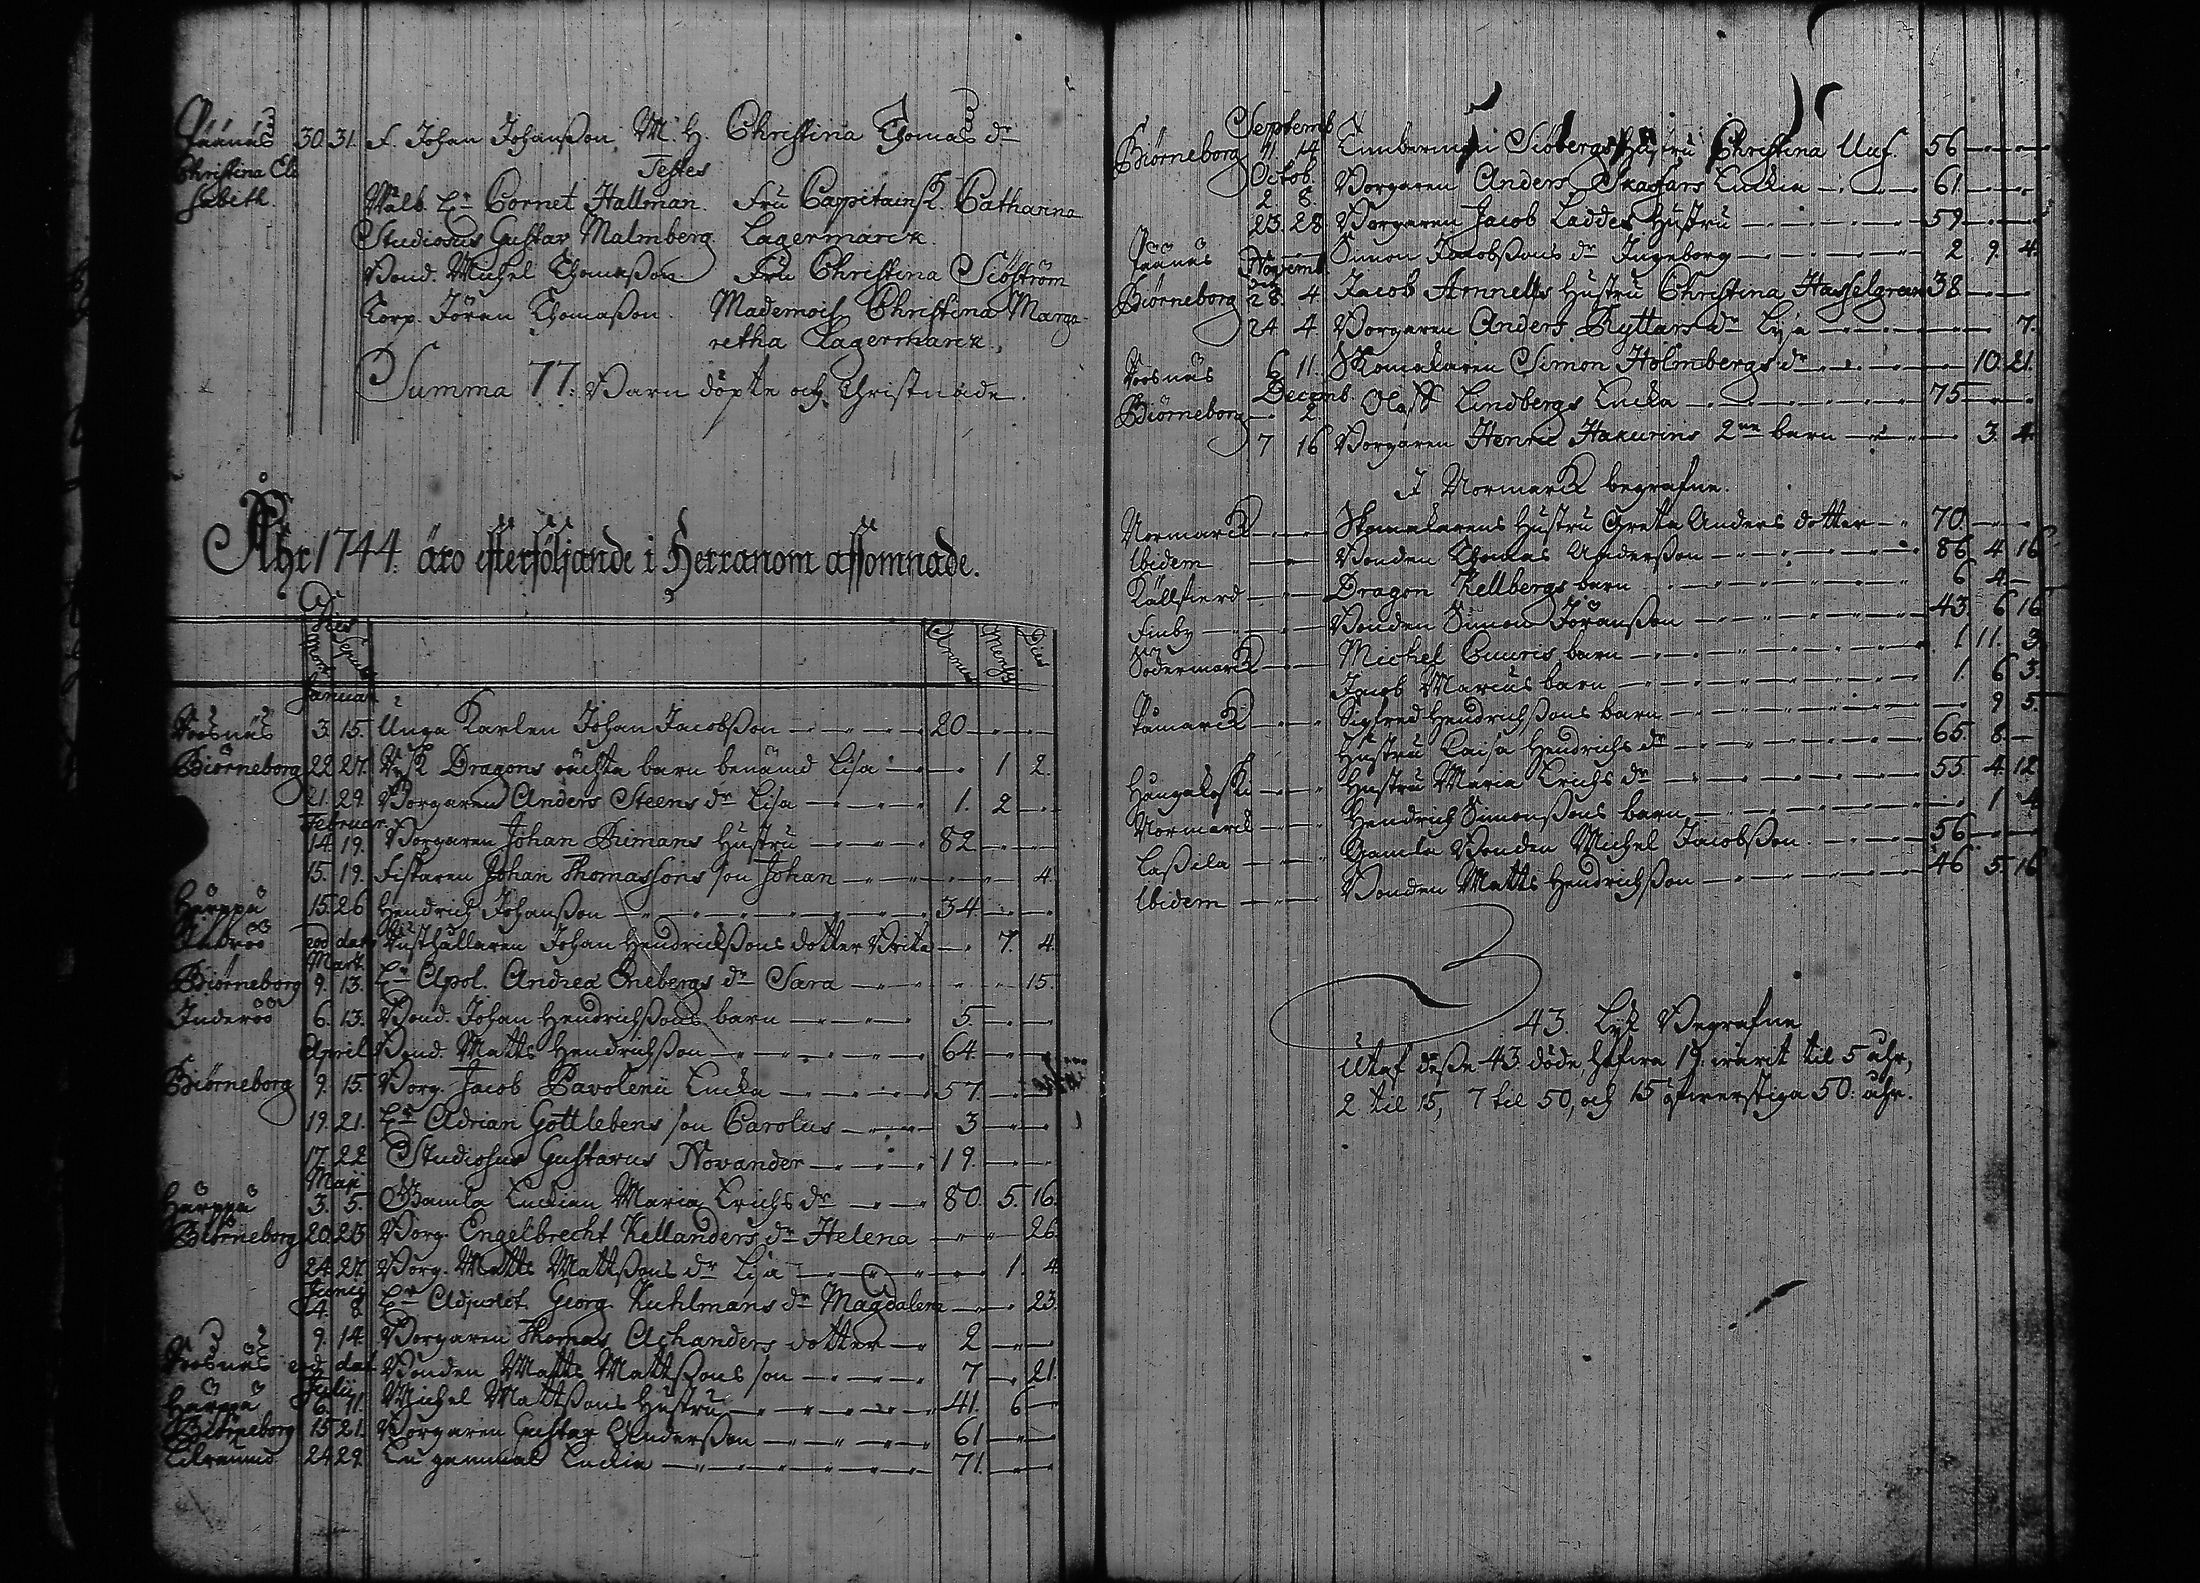 Päänäs 30. 31. F. Johan Johanßon, M. H. Christina Thomas dr
Christina Eli
sabeth.
Testes
Wälb. Hr Cornet Hallman. Fru Capitainsk. Catharina
Studiosus Gustav Malmberg. Lagermarck.
Bond. Michel Thomaßon. Fru Christina Siöström
Korp. Jören Thomaßon. Mademois. Christina Marga-
retha Lagermarck.
Summa 77. Barn döpte och Christnade.
Åhr 1744. äro efterföljande i Herranom afsomnade.
Dies
Mort. Sepult. Annus Mensis Dies
Januar.
Koosnäs 3. 15. Unga Karlen Johan Jacobßon 20
Biörneborg 22 27. Rysk Dragons oächta barn benämd Lisa 1 2.
21. 29. Borgaren Anders Steens dr Lisa 1. 2
Februar.
14. 19. Borgaren Johan Bimans Hustru 82
15. 19. Fiskaren Johan Thomassons son Johan 4.
Härppä 15 26 Hendrich Johanßon 34
Inderöö eod. dat. Rusthållaren Johan Hendrichßons dotter Brita 7. 4.
Mart.
Biörneborg 9. 13. Hr Apol. Andrea Enebergs dr Sara 15.
Inderöö 6. 13. Bond. Johan Hendrichßons barn 5.
April. Bond. Matts Hendrichßon 64.
Biörneborg 9. 15. Borg. Jacob Pavolenii Encka 57.
19. 21. Hr Adrian Gottlebens son Carolus 3
17. 22 Studiosus Gustavus Novander 19.
Maji
Härppä 3. 5. Gamla Enckian Maria Erichs dr 80. 5. 16.
Biörneborg 20. 25 Borg. Engelbrecht Kellanders dr Helena 26
24. 27. Borg. Matts Mattßons dr Lisa 1. 4.
Junij
4. 8. Hr Adjunct. Georg Kuhlmans dr Magdalena 23.
9. 14. Borgaren Thomas Achanders dotter 2
Koosnäs eod. dat. Bonden Matts Mattßons son 7 21.
Julij
Härppä 6. 11. Michel Mattßons Hustru 41. 6
Biörneborg 15 21. Borgaren Gustav Anderßon 61
24 29. En gammal Enckia 71.
Septemb.
Biörneborg 11. 14 Siöbergs Hustru Christina Uuf. 56
Octob.
2 8. Borgaren Anders Skaffars Enckia 61.
23. 28 Borgaren Jacob Laddes Hustru 59
Päänäs Simon Jacobßons dr Ingeborg 2. 9. 4.
Novemb.
Biörneborg 28. 4. Jacob Amnells Hustru Christina Hasselgreen 38
24 4 Borgaren Anders Ryttars dr Lisa 7.
Koosnäs 6 11. Skomakaren Simon Holmbergs dr 10. 21.
Decemb.
Biörneborg 2. Oloff Lindbergs Encka 75
7 16 Borgaren Henric Hakurins 2ne barn 3. 4.
I Normarck begrafne.
Normarck Skomakarens Hustru Greta Anders dotter 70
Ibidem Bonden Thomas Anderßon 86 4 16
Källfierd Dragon Kellbergs barn 6 4.
Finby Bonden Simon Jöranßon 43. 6 16
Södermarck Michel Cuuris barn 1 11. 3.
Jacob Marcus barn 1. 6 3.
Tamarck Sigfred Hendrichßons barn 9 5.
Hustru Caisa Hendrichs dr 65. 8.
Hangakoski Hustru Maria Erichs dr 55. 4. 12
Normarck Hendrich Simonßons barn 1 4
Laßila Gamla Bonden Michel Jacobßon 56
Ibidem Bonden Matts Hendrichßon 46 5. 16
43. Lijk Begrafne
Utaf deße 43. döde, hafwa 19. warit til 5 åhr,
2 til 15, 7 til 50, och 15 öfwerstiga 50. åhr.